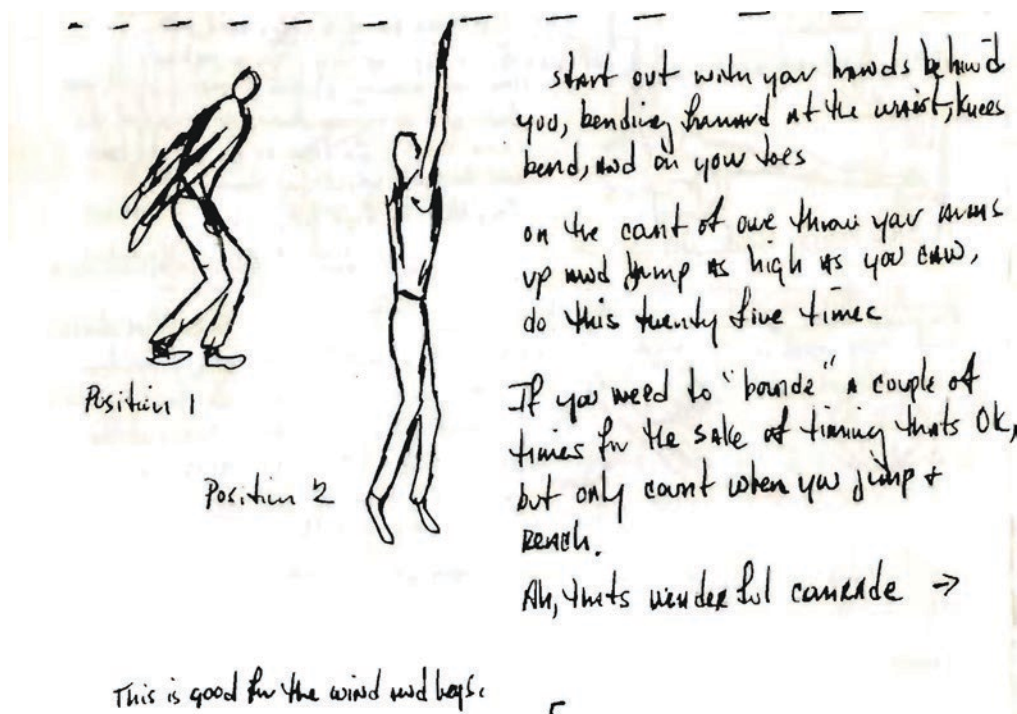 start out with your hands behind
you, bending forward at the waist, knees
bend, and on your toes
on the count of one throw your arms
up and jump as high as you can,
do this twenty five times
If you need to "bounde" a couple of
times for the sake of timing thats Ok,
but only count when you jump +
reach.
Ah, thats wonderful comrade →
Position 1
Position 2
This is good for the wind and legs.
5